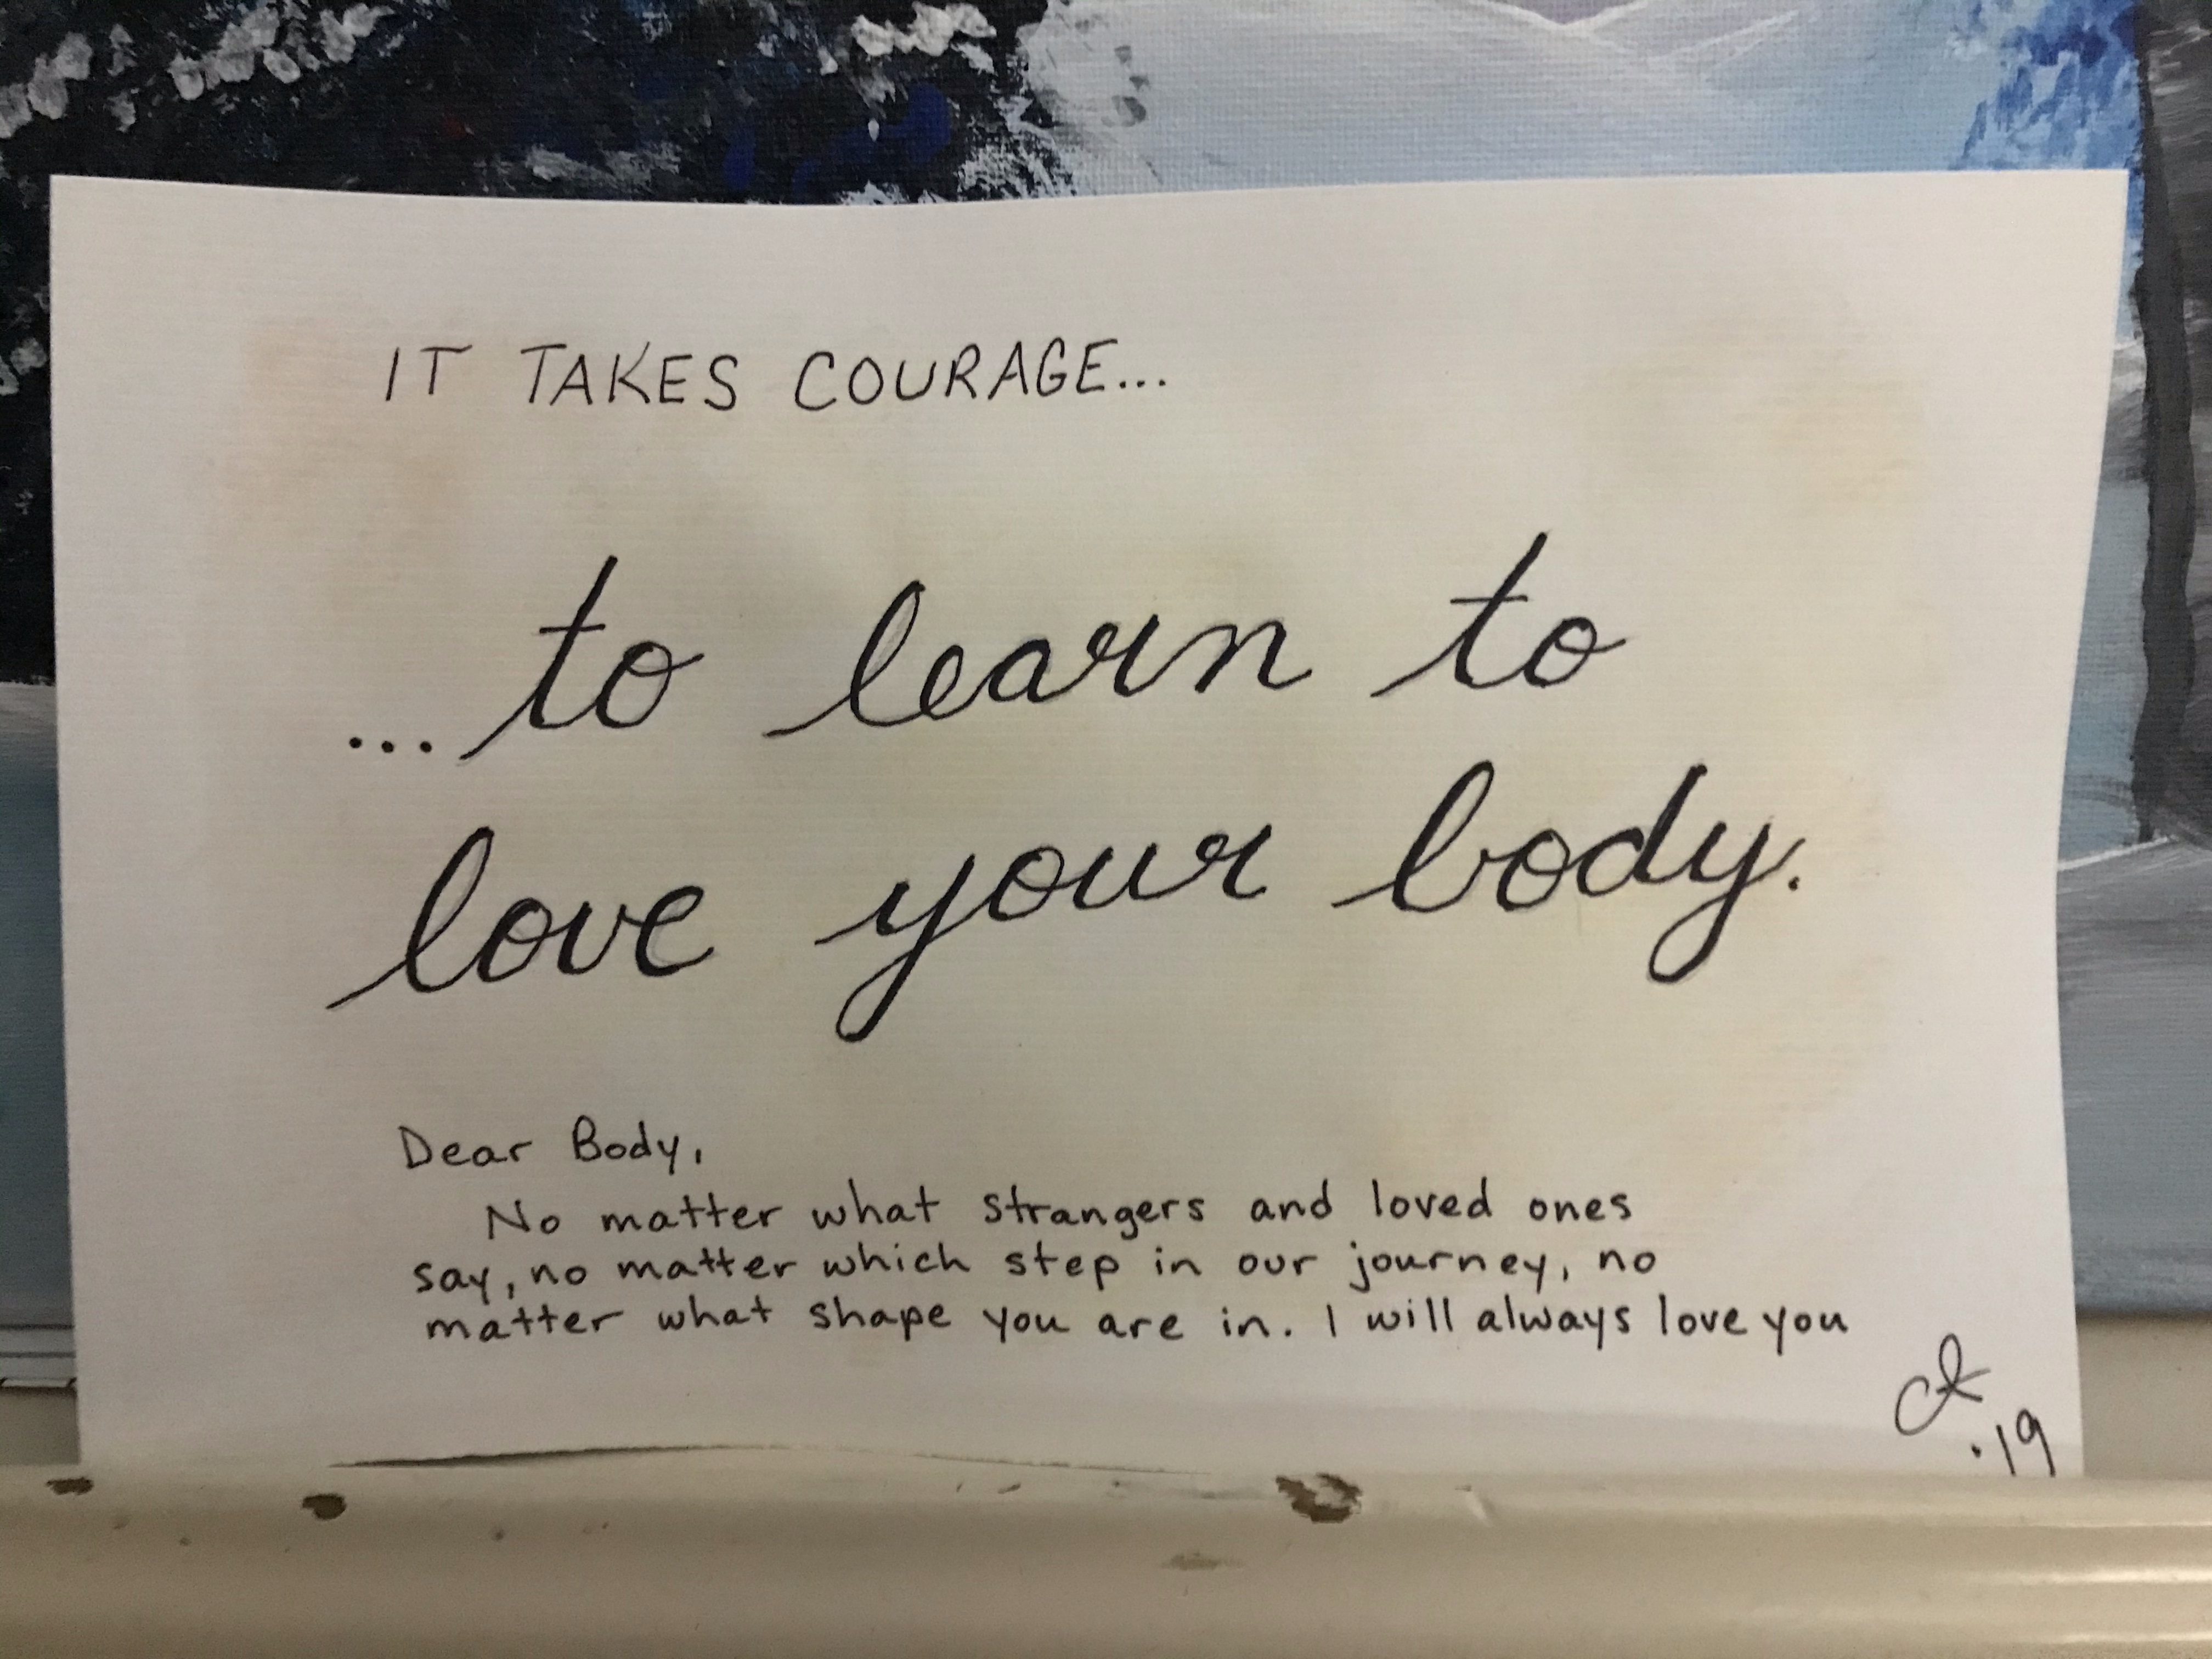 IT TAKES COURAGE...
...to learn to
love your body.
Dear Body,
No matter what strangers and loved ones
say, no matter which step in our journey, no
matter what shape you are in. I will always love you
.19